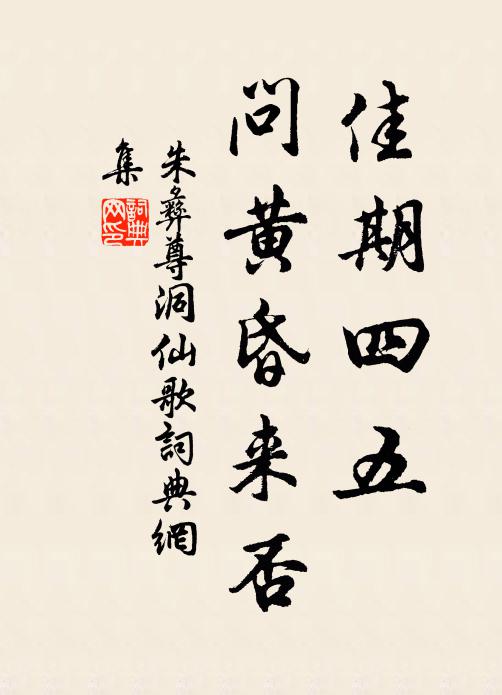 佳期四五
問黄昏来否
朱彝尊洞仙歌詞典網
集
詞典
网印